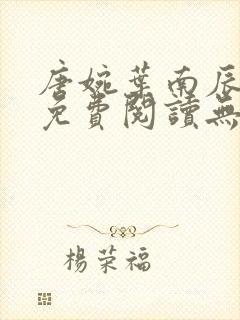 唐婉葉南辰
免費閱讀無
楊荣福